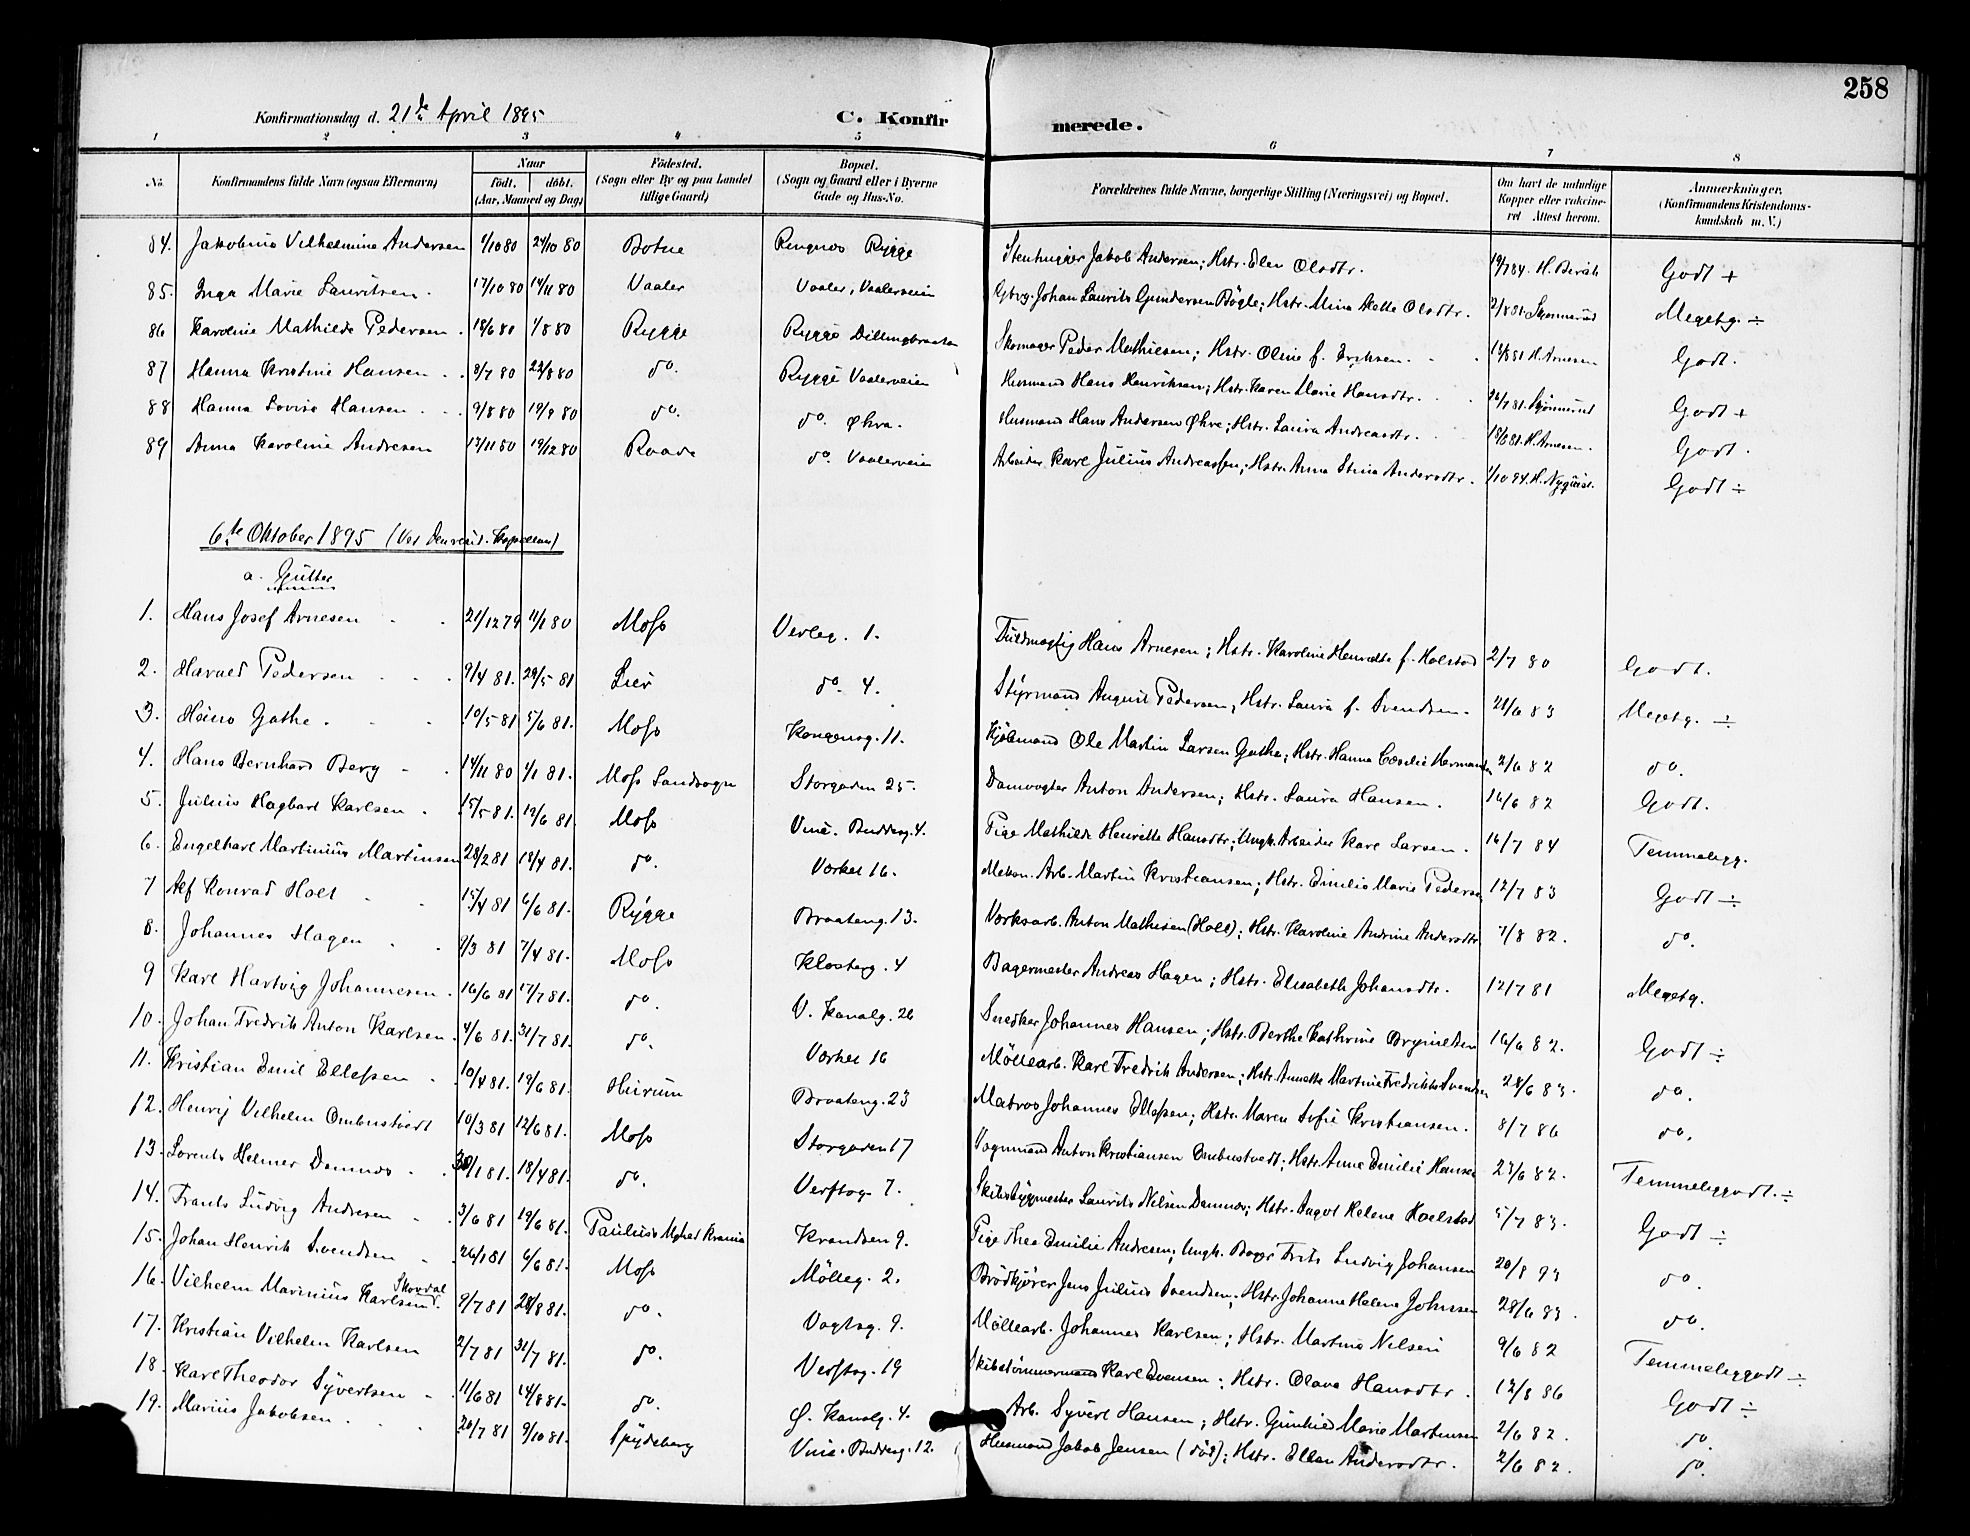 258
Konfirmationsdag d. 21de April 1895
C. Konfirmerede.
1 2 3 4 5 6 7 8
No. Konfirmandens fulde Navn (ogsaa Efternavn) Naar födt. döbt. (Aar, Maaned og Dag) Födested. (Sogn eller By og paa Landet tillige Gaard) Bopæl. (Sogn og Gaard eller i Byerne Gade og Hus-No. Forældrenes fulde Navne, borgerlige Stilling (Næringsvei) og Bopæl. Om havt de naturlige Kopper eller vaccineret Attest herom. Anmærkninger. (Konfirmandens Kristendomskundskab m. V.)
84. Jakobine Vilhelmine Andersen 1/10 80 24/10 80 Botne Rygge Stenhugger Jakob Andersen; Hstr. Elen Olsdtr. 19/7 84. H. Godt +
85. Inga Marie Lauritsen. 17/10 80 14/11 80 Vaaler Vaaler, Vaalerveien Gbrg. Johan Laurits Gundersen Bögle; Hstr. Mina Mette Olsdtr. 2/8 81. Megetg. ÷
86 Karoline Mathilde Pedersen. 18/6 80 1/8 80 Rygge Rygge Dillingbraaten Skomager Peder Mathiesen; Hstr. Oline f. 12/8 81 H. Arnesen Godt.
87 Hanna Kristine Hansen 8/7 80 22/8 80 do. Rygge Vaalerveien Husmand Hans Henriksen; Hstr. Karen Marie Hansdtr. 26/7 81. Godt +
88 Hanna Lovise Hansen 9/8 80 19/9 80 do. do. Ökre. Husmand Hans Andersen Ökre; Hstr. Laura Andreasdtr. 18/6 81. H. Arnesen. Godt.
89 Anna Karoline Andresen 17/11 80 19/12 80 Raade do. Vaalerveien Arbeider Karl Julius Andreassen; Hstr. Anna Stina Andersdtr. 1/10 94. H. Nyquist. Godt ÷
6te Oktober 1895 (Ved den resid. Kapellan)
a. Gutter
1. Hans Josef Arnesen 21/12 79 11/1 80 Moss Verleg. 1. Fuldmægtig Hans Arnesen; Hstr. Karoline Henrette f. Holstad 2/7 80 Godt.
2. Harald Pedersen 9/4 81. 29/5 81 Lier do. 4. Styrmand August Pedersen, Hstr. Laura f. Svendsen. 21/6 83 Megetg. ÷
3. Heino Gathe. 10/5 81 5/6 81. Moss Kongensg. 11. Kjöbmand Ole Martin Larsen Gathe; Hstr. Hanna Cæcilie Hermansen 2/6 82 do.
4. Hans Bernhard Berg 14/11 80 4/1 81. Moss Landsogn Storgaden 25. Damvogter Anton Andersen; Hstr. Laura Hansen. 16/6 82 Godt.
5. Julius Hagbart Karlsen. 15/5 81. 12/6 81. Moss Vinc. Buddesg. 4. Pige Mathilde Henriette Hansdtr; Ungk. Arbeider Karl Larsen. 16/7 84 Temmeligg.
6. Engelhart Martinius Martinsen 28/2 81 18/4 81. do. Værket 16. Mekan. Arb. Martin Kristiansen; Hstr. Emilie Marie Pedersen 12/7 83 Godt ÷
7 Alf Konrad Holt 15/4 81 6/6 81. Rygge Braateng. 13. Værksarb. Anton Mathisen (Holt); Hstr. Karoline Andrine Andersdtr. 7/8 82. do.
8. Johannes Hagen 9/3 81 7/4 81. Moss Klosterg. 4 Bagermester Andreas Hagen; Hstr. Elisabeth Johansdtr. 12/7 81 Megetg.
9 Karl Hartvig Johannesen. 16/6 81 17/7 81. do. V. Kanalg. 26 Snedker Johannes Hansen; Hstr. Berthe Kathrine Brynildsen 16/6 82. Godt ÷
10. Johan Fredrik Anton Karlsen. 4/6 81. 31/7 81. do. Værket 16 Möllearb. Karl Fredrik Andersen; Hstr. Annette Martine Fredrikke Svendsen 28/6 83. do.
11. Kristian Emil Ellefsen. 10/4 81. 19/6 81. Hurum Braateng. 23 Matros Johannes Ellefsen; Hstr. Maren Sofie Kristiansen. 8/7 86 do.
12. Henrij Vilhelm Ombustvedt 10/3 81 12/6 81. Moss Storgaden 17 Vognmand Anton Kristiansen Ombustvedt; Hstr. Anne Emilie Hansen 23/6 82. Temmeliggodt. ÷
13. Lorents Helmer Damnæs 30/1 81. 18/4 81. do. Verftsg. 7. Skibsbygmester Laurits Nilsen Damnæs; Hstr. Ingot Helene Hoelstad 5/7 83. Godt ÷
14. Frants Ludvig Andresen 3/6 81 19/6 81. Paulus Mghed Krania Krandsen 9. Pige Thea Emilie Andresen; Ungk. Bager Frits Ludvig Johansen 20/8 93 do.
15. Johan Henrik Svendsen 26/1 81 6/6 81. Moss Mölleg. 2. Brödkjörer Jens Julius Svendsen; Hstr. Johanne Helene Johnsen 28/6 83. do.
16. Vilhelm Marinius Karlsen Skovdal. 9/7 81 28/8 81. do. Vogtsg. 9. Möllearb. Johannes Karlsen; Hstr. Martine Nilsen 9/6 82 Temmeliggodt ÷
17. Kristian Vilhelm Karlsen 2/7 81 31/7 81. do. Verftsg. 19 Skibstömmermand Karl Evensen; Hstr. Olava Hansdtr. 12/8 86 Godt ÷
18. Karl Theodor Syvertsen 11/6 81 14/8 81. do. Ö. Kanalg. 4. Arb. Syvert Hansen; Hstr. Gunhild Marie Martinsen 2/6 82. do.
19. Marius Jakobsen 20/7 81 9/10 81. Spydeberg Vinc. Buddesg. 12. Husmand Jakob Jensen (död); Hstr. Ellen Andersdtr. 2/6 82. do.